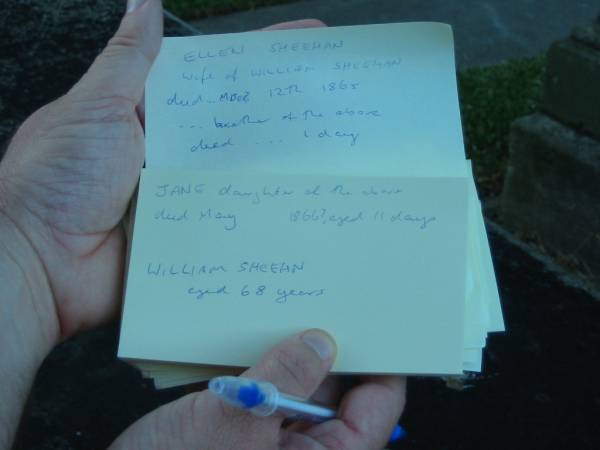 ELLEN SHEEHAN
Wife of WILLIAM SHEEHAN
died ... 12TH 1865
... brother of the above
died .... 1 day
JANE daughter of the above
died May 1866?, aged 11 days
WILLIAM SHEEHAN
aged 68 years